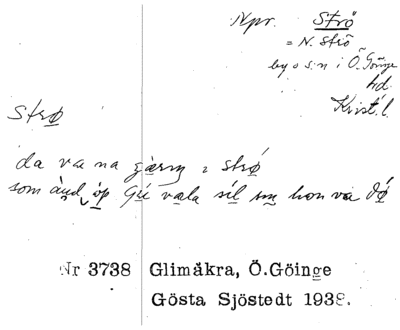 Npr. Strö
= N. Strö
by o s:n i Ö. Göinge
hd.
Krist. l.
strø
da va na gàrny i strǿ
som ànd òp Gú vala sil my hon va dǿ
Nr 3738 Glimåkra, Ö.Göinge
Gösta Sjöstedt 1938.